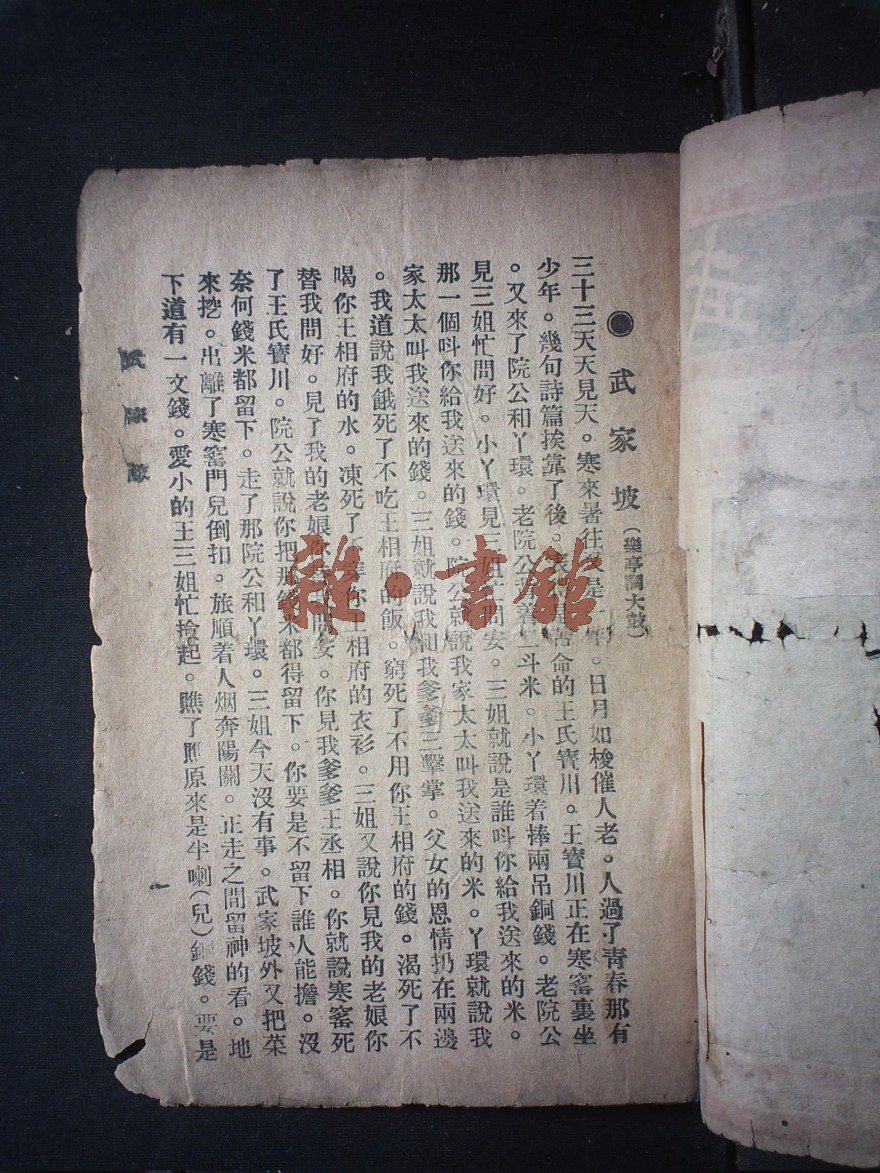 ●武家坡(樂亭調大鼓)
三十三天天見天。寒來暑往是年。日月如梭催人老。人過了青春那有
少年。幾句詩篇挨靠了後。表命的王氏寶川。王寶川正在寒窰裏坐
。又來了院公和丫環。老院公着斗米。小丫環着棒兩吊銅錢。老院公
見三姐忙問好。小丫環見三姐忙問安。三姐就說是誰呌你給我送來的米。
那一個呌你給我送來的錢。院公就說我家太太叫我送來的米。丫環就說我
家太太叫我送來的錢。三姐就說我和我爹爹三擊掌。父女的恩情扔在兩邊
。我道說我餓死了不吃王相府的飯。窮死了不用你王相府的錢。渴死了不
喝你王相府的水。凍死了不你王相府的衣衫。三姐又說你見我的老娘你
替我問好。見了我的老娘你問安。你見我爹爹王丞相。你就說寒窰死
了王氏寶川。院公就說你把那錢米都得留下。你要是不留下誰人能擔。沒
奈何錢米都留下。走了那院公和丫環。三姐今天沒有事。武家坡外又把菜
來挖。出離了寒窰門兒倒扣。旅順着人烟奔陽關。正走之間留神的看。地
下道有一文錢。愛小的王三姐忙撿起。瞧了瞧原來是半喇(兒)銅錢。要是
武家坡
一
雜·書館